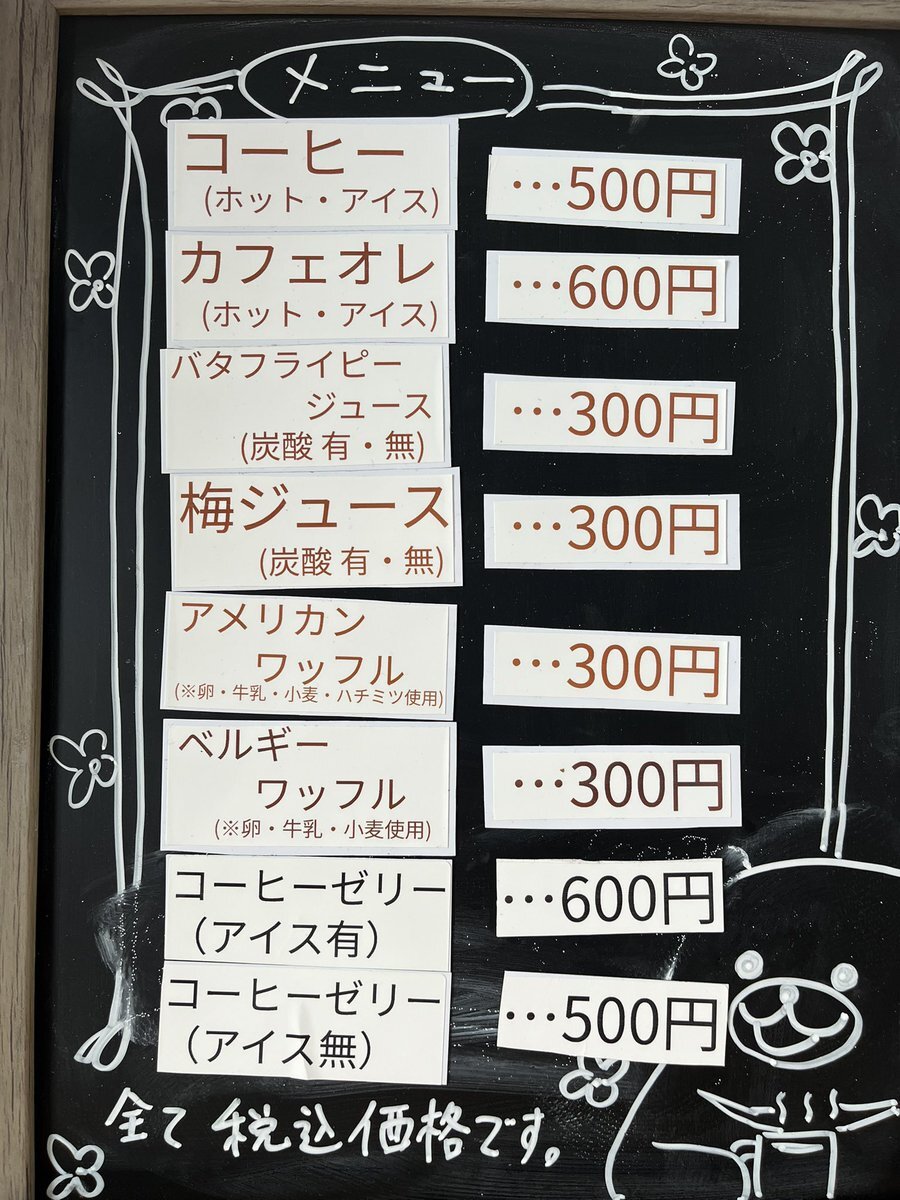 メニュー
コーヒー
(ホット・アイス)
…500円
カフェオレ
(ホット・アイス)
…600円
バタフライピー
ジュース
(炭酸 有・無)
…300円
梅ジュース
(炭酸 有・無)
…300円
アメリカン
ワッフル
(※卵・牛乳・小麦・ハチミツ使用)
…300円
ベルギー
ワッフル
(※卵・牛乳・小麦使用)
…300円
コーヒーゼリー
（アイス有）
…600円
コーヒーゼリー
（アイス無）
…500円
全て税込価格です。